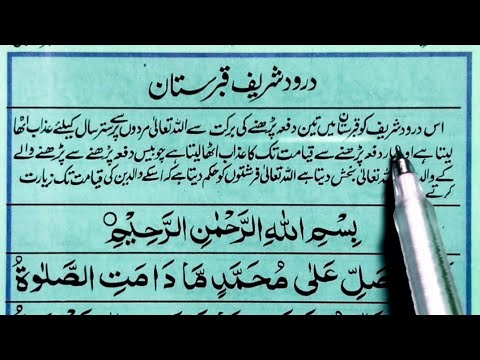 درود شریف قبرستان
اس درود شریف کو قبرستان میں تین دفعہ پڑھنے کی برکت سے اللہ تعالیٰ مردوں پر سے ستر سال کیلئے عذاب اٹھا
لیتا ہے اور دفعہ پڑھنے سے قیامت تک کا عذاب اٹھا لیتا ہے چوبیس دفعہ پڑھنے سے پڑھنے والے
کے والد اللہ تعالیٰ بخش دیتا ہے اللہ تعالیٰ فرشتوں کو حکم دیتا ہے کہ اسکے والدین کی قیامت تک زیارت
کرتے
بِسْمِ اللهِ الرَّحْمٰنِ الرَّحِيْمِ
صَلِّ عَلٰى مُحَمَّدٍ مَّا دَامَتِ الصَّلٰوةُ